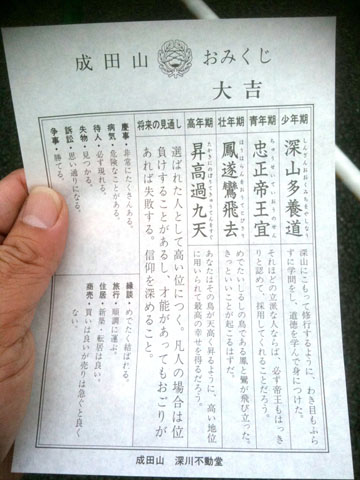 成田山 おみくじ
大吉
少年期
深山多養道
しんざんおおくみちをやしなう
深山にこもって修行するように、わき目もふら
ずに学問をし、道徳を学んで身につけた。
青年期
忠正帝王宜
それほどの立派な人ならば、必ず帝王もはっき
りと認めて、採用してくれることだろう。
壮年期
鳳遂鸞飛去
めでたいしるしの鳥である鳳と鸞が飛び立った。
きっといいことが起こるはずだ。
高年期
昇高過九天
あなたはその鳥が天高く昇るように、高い地位
に用いられて最高の幸せを得るだろう。
将来の見通し
選ばれた人として高い位につく。凡人の場合は位
負けすることがあるし、才能があってもおごりが
あれば失敗する。信仰を深めること。
慶事・非常にたくさんある。
病気・危険なことがある。
待人・必ず現れる。
失物・見つかる。
訴訟・思い通りになる。
争事・勝てる。
縁談・めでたく結ばれる。
旅行・順調に運ぶ。
住居・新築・転居は良い。
商売・買いは良いが売りは急ぐと良く
ない。
成田山 深川不動堂